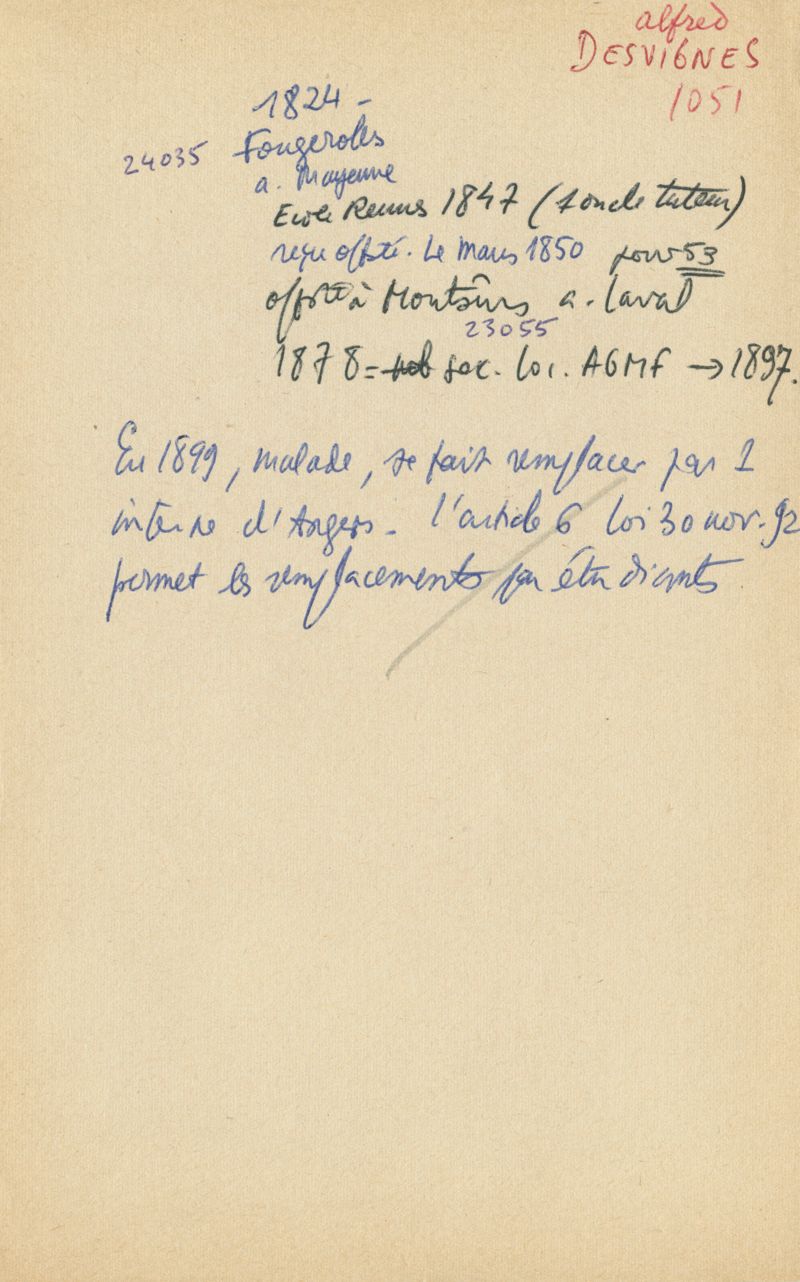 alfred
DESVIGNES
1051
1824 -
24035 Fougerolles
a. Mayenne
Ecole Rennes 1847 (1 oncle tuteur)
reçu offsté. Le Mans 1850 pour 53
offsté à Montsûrs a. Laval
23055
1878 = sec. loc. AGMF → 1897.
En 1899, malade, se fait remplacer par 1
interne d'Angers - l'article 6 loi 30 nov. 92
permet les remplacements par étudiants